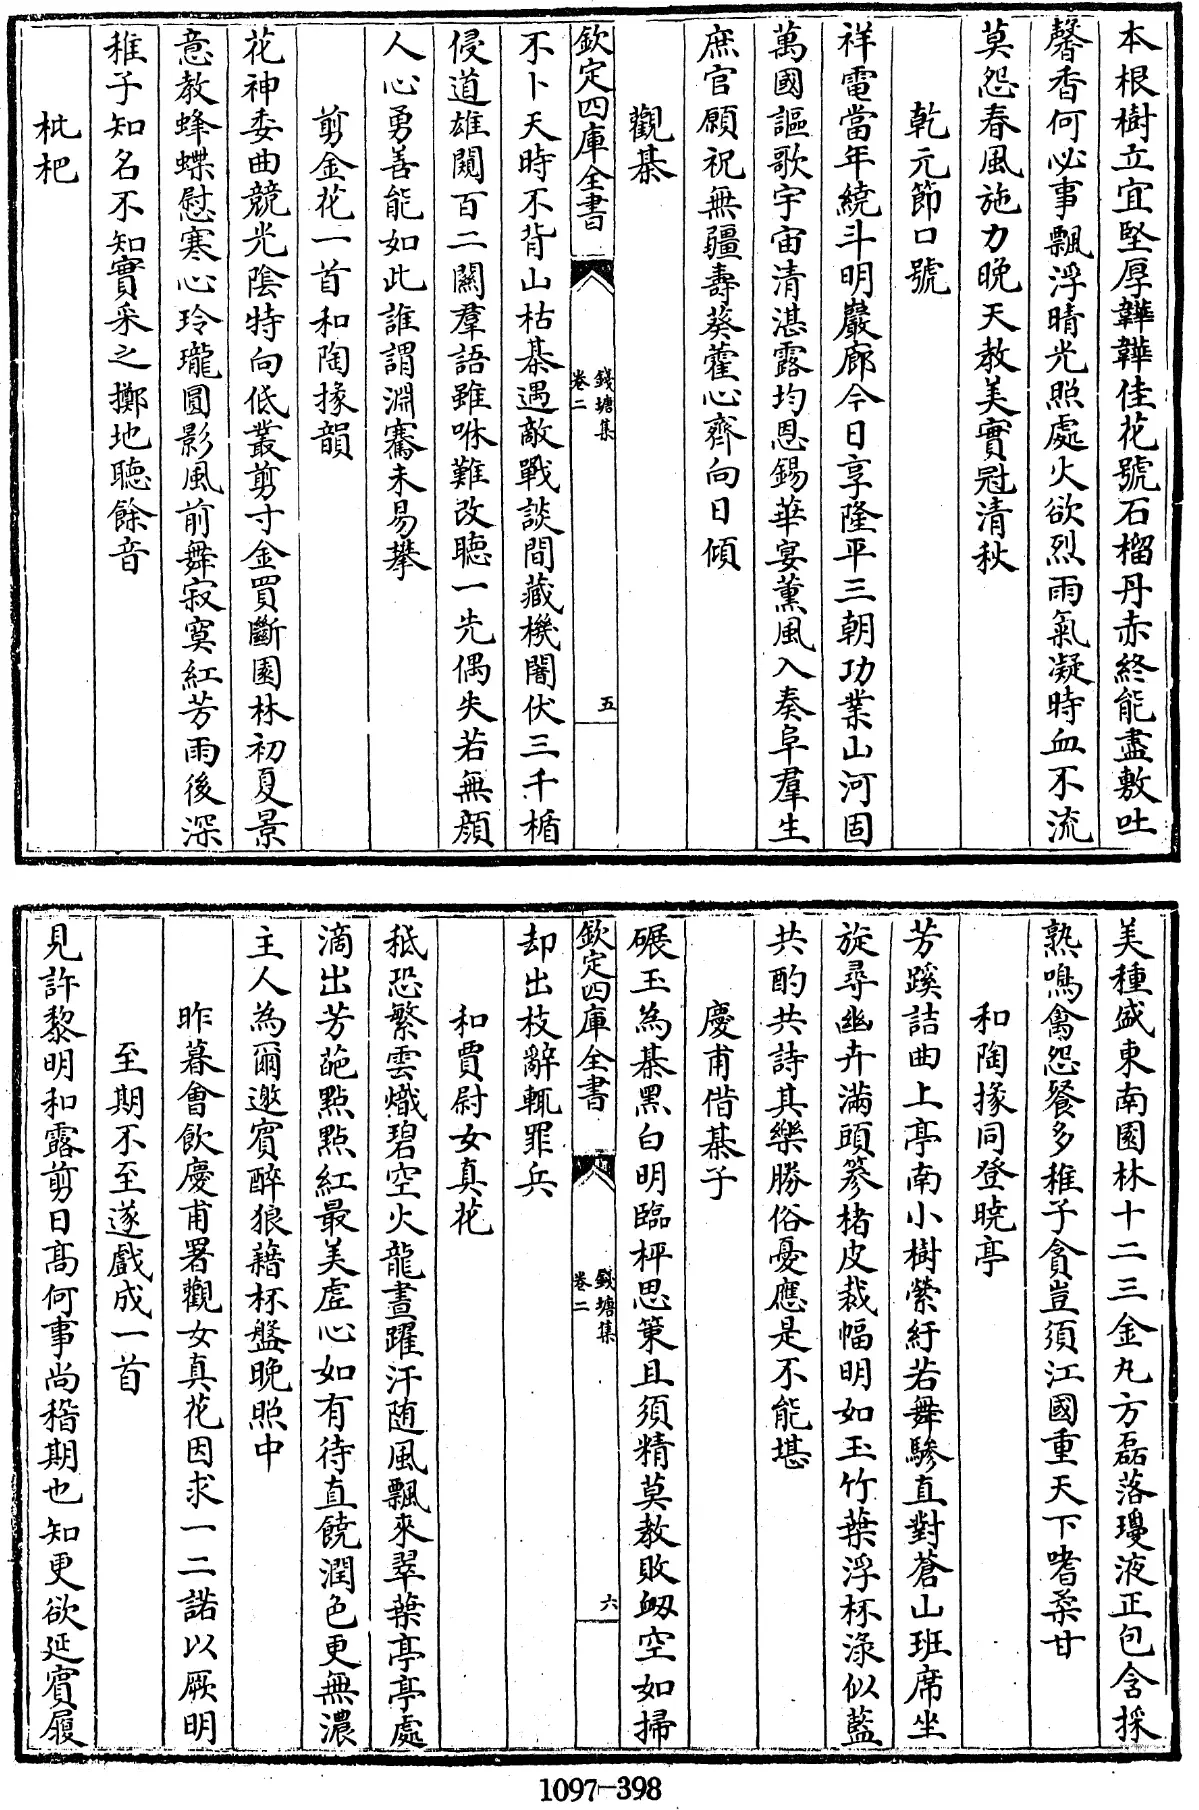 本根樹立宜堅厚韡韡佳花號石榴丹赤終能盡敷吐
馨香何必事飄浮晴光照處火欲烈雨氣凝時血不流
莫怨春風施力晚天教美實冠清秋
乾元節口號
祥電當年繞斗明巖廊今日享隆平三朝功業山河固
萬國謳歌宇宙清湛露均恩錫華宴薰風入奏阜羣生
庶官願祝無疆壽葵藿心齊向日傾
觀棊
欽定四庫全書
錢塘集
卷二
五
不卜天時不背山枯棊遇敵戰談間藏機闇伏三千楯
侵道雄闚百二關羣語雖咻難改聴一先偶失若無顔
人心勇善能如此誰謂淵騫未易攀
剪金花一首和陶掾韻
花神委曲競光陰特向低叢剪寸金買斷園林初夏景
意教蜂蝶慰寒心玲瓏圓影風前舞寂寞紅芳雨後深
稚子知名不知實采之擲地聴餘音
枇杷
美種盛東南園林十二三金丸方磊落瓊液正包含採
熟鳴禽怨餐多稚子貪豈須江國重天下嗜柔甘
和陶掾同登曉亭
芳蹊詰曲上亭南小樹縈紆若舞驂直對蒼山班席坐
旋尋幽卉滿頭簪楮皮裁幅明如玉竹葉浮杯淥似藍
共酌共詩其樂勝俗憂應是不能堪
慶甫偕棊子
碾玉為棊黑白明臨枰思策且須精莫教敗衂空如掃
欽定四庫全書
錢塘集
卷二
六
却出枝辭輒罪兵
和賈尉女真花
秖恐繁雲熾碧空火龍晝躍汗随風飄來翠葉亭亭處
滴出芳葩點點紅最美虚心如有待直饒潤色更無濃
主人為爾邀賓醉狼藉杯盤晚照中
昨暮會飲慶甫署觀女真花因求一二諾以厥明
至期不至遂戲成一首
見許黎明和露剪日髙何事尚稽期也知更欲延賓履
1097-398